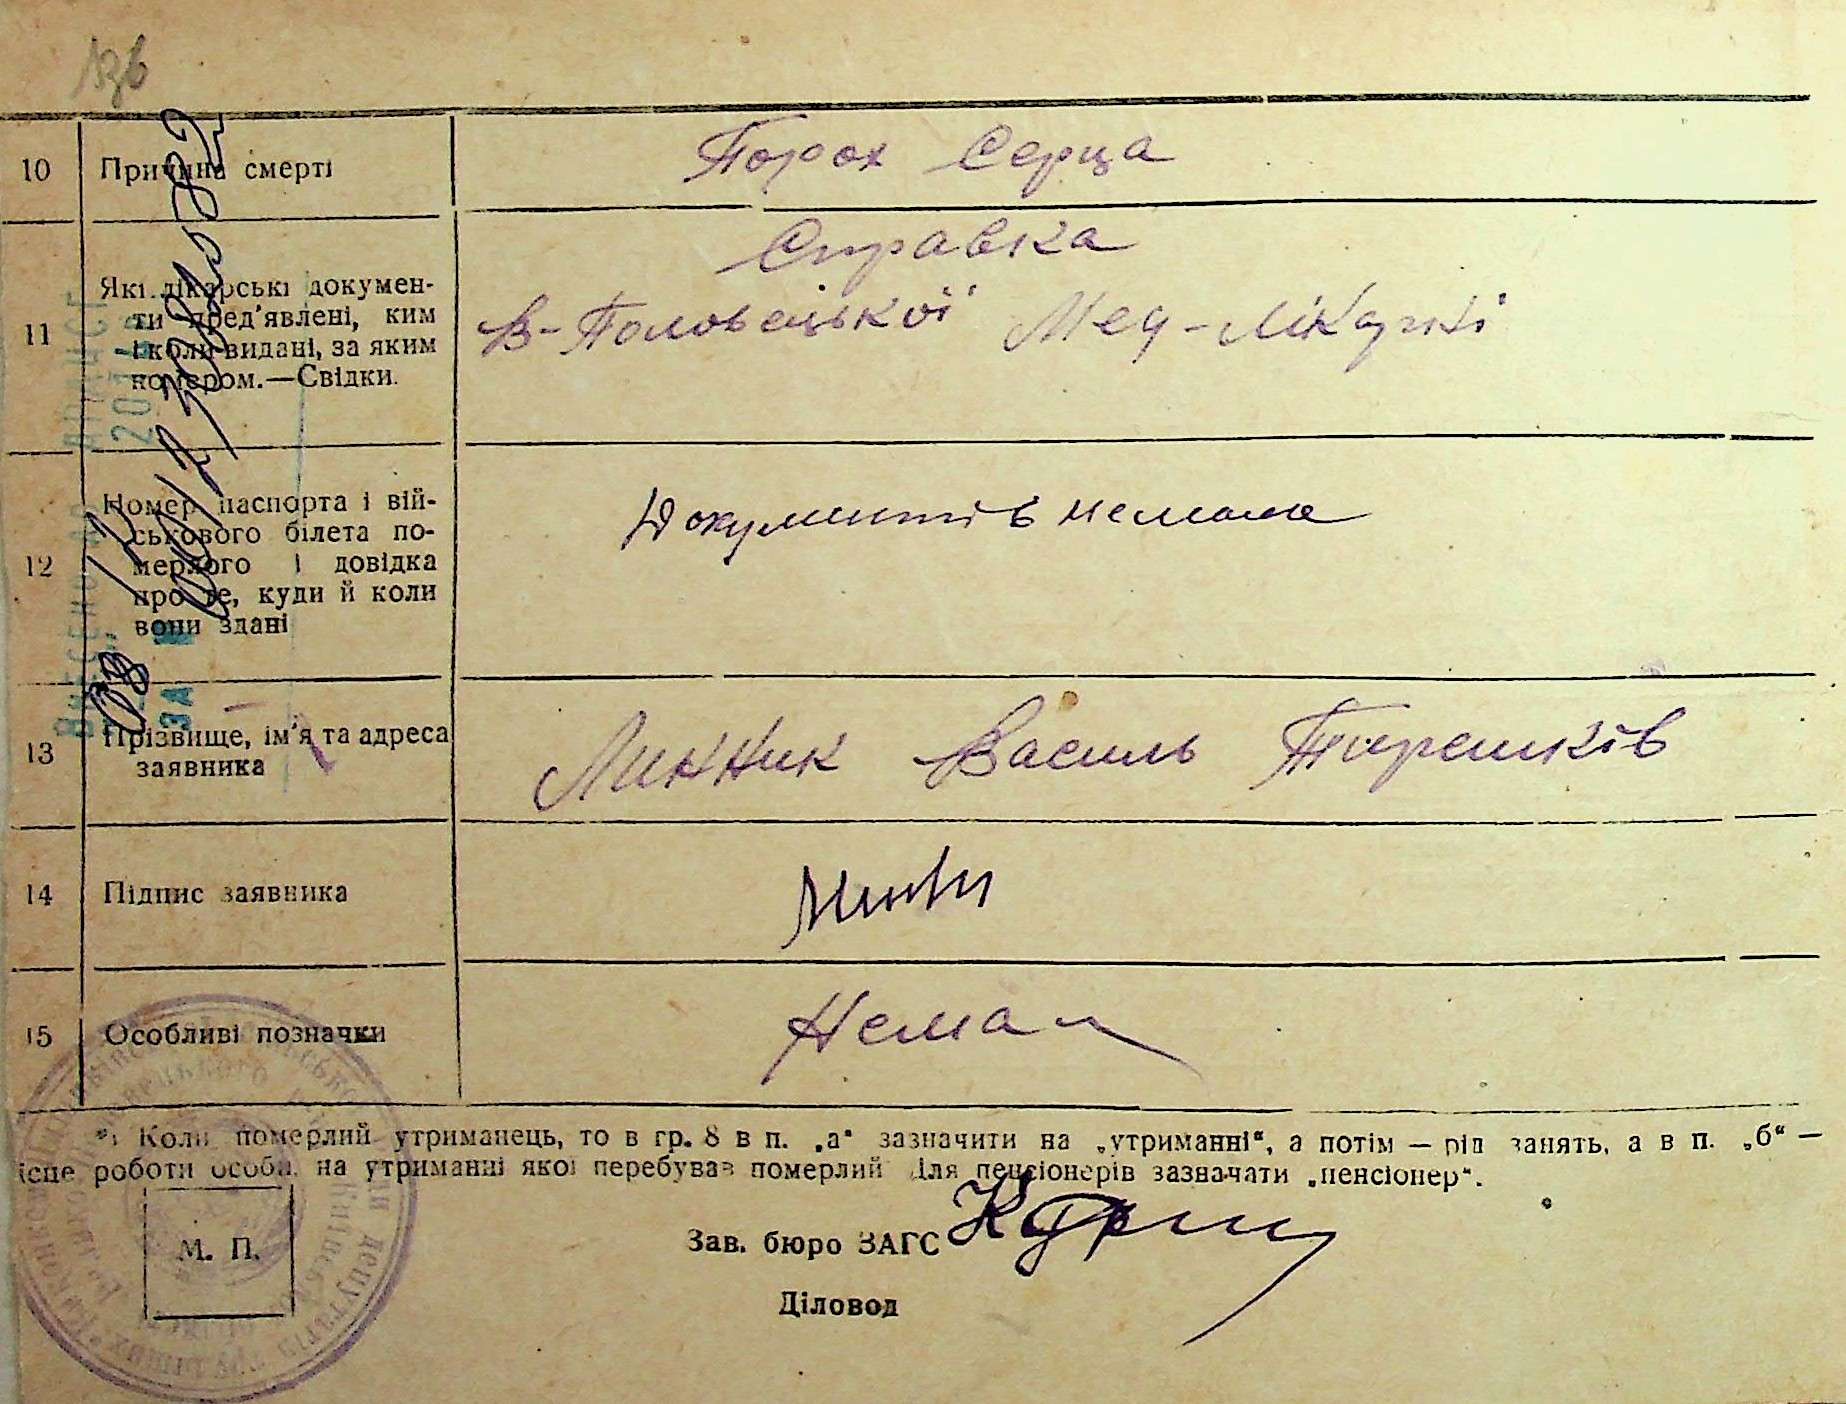 10 Причина смерті Порох Серця
Справка
11 Які лікарські докумен-
ти пред'явлені, ким
і коли видані, за яким
номером.—Свідки.
В-Половецької Мед-лікарні
12 Номер паспорта і вій-
ськового білета по-
мерлого і довідка
про те, куди й коли
вони здані
Документів немає
13 Прізвище, ім'я та адреса
заявника
Линник Василь
14 Підпис заявника
15 Особливі позначки Нема
*) Коли померлий утриманець, то в гр. 8 в п. „а“ зазначити на „утриманні“, а потім — рід занять, а в п. „б“ —
ісце роботи особи, на утриманні якої перебував померлий Для пенсіонерів зазначати „пенсіонер“.
М. П.
Зав. бюро ЗАГС
Діловод
ВНЕСЕНО ДО
ЗА №